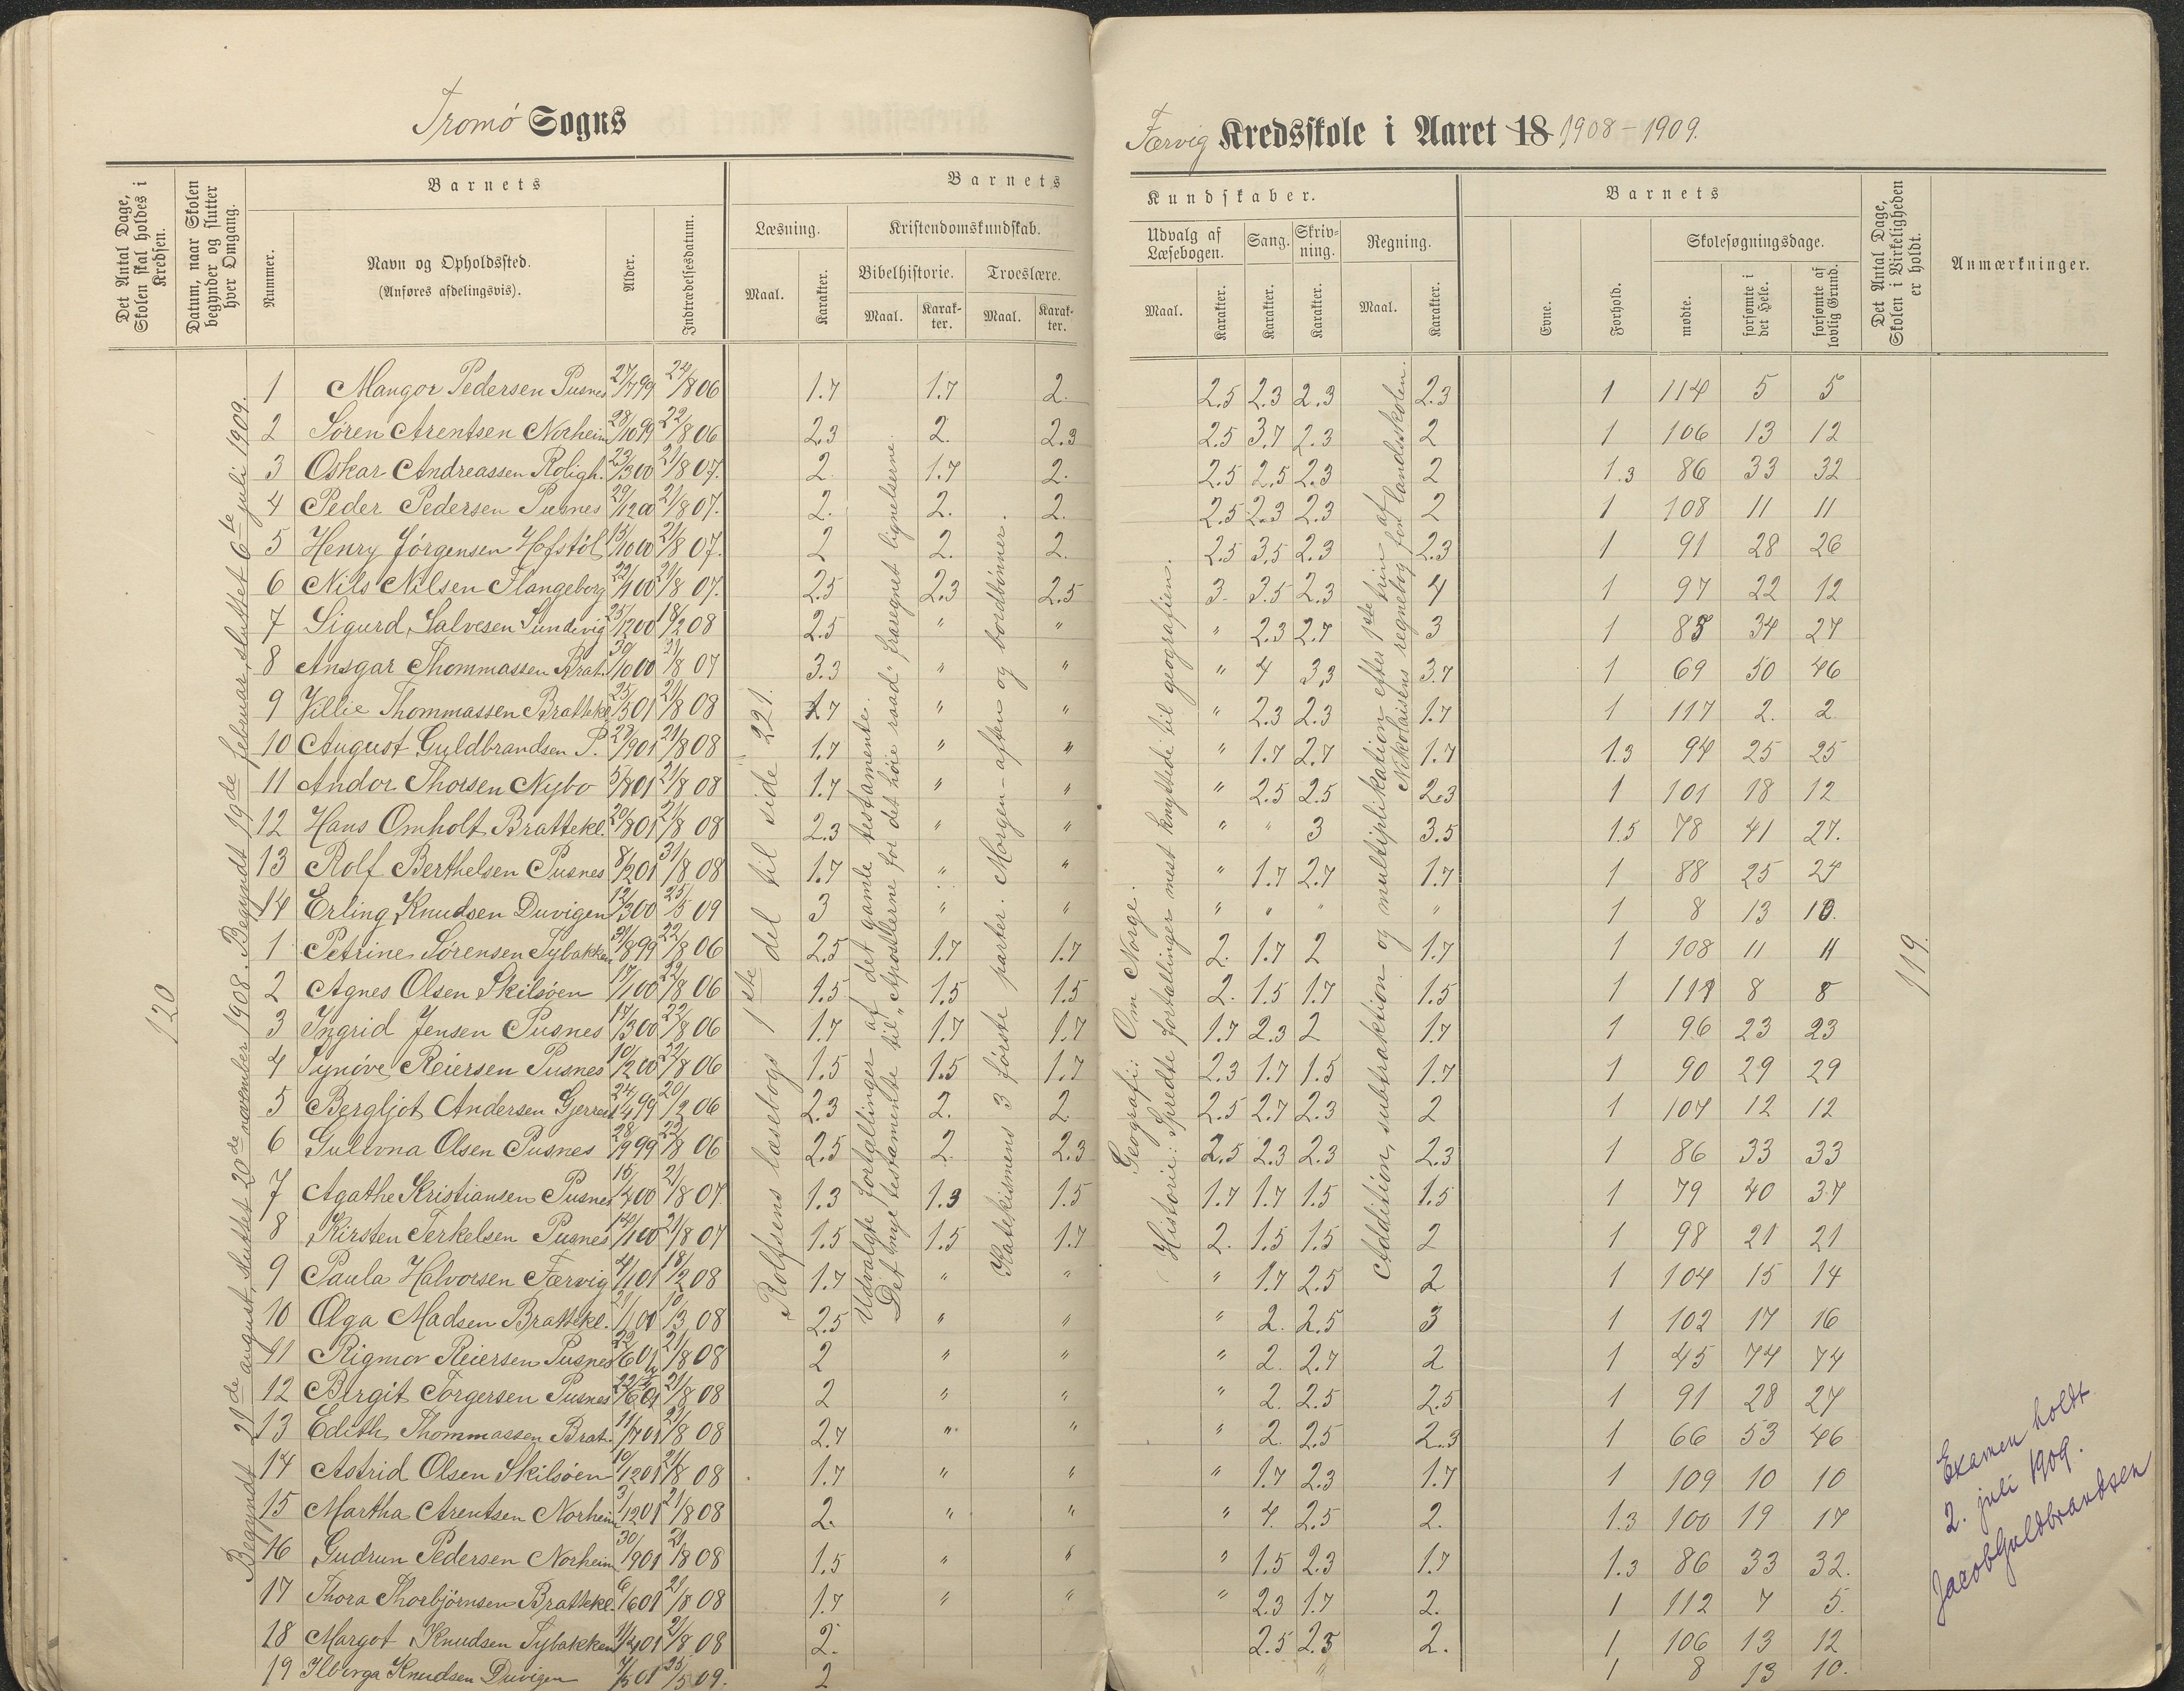 Tromö Sogns
Færvig Kredsskole i Aaret 18 1908-1909.
Det Antal Dage, Skolen skal holdes i Kredsen.
Datum, naar Skolen begynder og slutter hver Omgang.
Barnets
Nummer.
Navn og Opholdssted.
(Anføres afdelingsvis).
Alder.
Indtrædelsesdatum.
Barnets
Kundskaber.
Læsning.
Maal.
Karakter.
Kristendomskundskab.
Bibelhistorie.
Maal.
Karakter.
Troeslære.
Maal.
Karakter.
Udvalg af Læsebogen.
Maal.
Karakter.
Sang.
Karakter.
Skrivning.
Karakter.
Regning.
Maal.
Karakter.
Barnets
Evne.
Forhold.
Skolesøgningsdage.
mødte.
forsømte i det Hele.
forsømte af lovlig Grund.
Det Antal Dage, Skolen i Virkeligheden er holdt.
Anmærkninger.
120
Begyndt 21de august, sluttet 20de november 1908. Begyndt 19de februar, sluttet 6te juli 1909.
Rolfsens læsebogs 1ste del til side 221.
Udvalgte fortællinger af det gamle testamente.
Det nye testamente til "Apostlerne for det høie raad", fraregnet lignelserne.
Katekismens 3 første parter. Morgen- aften og bordbønner.
Geografi: Om Norge.
Historie: Spredte fortællinger mest knyttede til geografien.
Addition, subtraktion og multiplikation efter 1ste trin af
Nikolaisens regnebog for landsskolen.
1 Mangor Pedersen Pusnes 27/7 99 22/8 06 1.7 1.7 2. 2.5 2.3 2.3 2.3 1 114 5 5
2 Sören Arentsen Norheim 28/10 99 22/8 06 2.3 2. 2.3 2.5 3.7 2.3 2 1 106 13 12
3 Oskar Andreassen Roligh. 23/3 00 21/8 07. 2. 1.7 2. 2.5 2.5 2.3 2 1.3 86 33 32
4 Peder Pedersen Pusnes 29/12 00 21/8 07. 2. 2. 2. 2.5 2.3 2.3 2 1 108 11 11
5 Henry Jörgensen Hofstöl 15/10 00 21/8 07. 2 2. 2. 2.5 3.5 2.3 2.3 1 91 28 26
6 Nils Nilsen Slangeborg 22/1 00 21/8 07. 2.5 2.3 2.5 3. 3.5 2.3 4 1 97 22 12
7 Sigurd Salvesen Sundvig 25/12 00 18/2 08 2.5 " " " 2.3 2.7 3 1 85 34 27
8 Ansgar Thommassen Brat. 30/10 00 21/8 07 3.3 " " " 4 3.3 3.7 1 69 50 46
9 Villie Thommassen Brattekl. 25/5 01 21/8 08 1.7 " " " 2.3 2.3 1.7 1 117 2. 2
10 August Guldbrandsen P. 23/9 01 21/8 08 1.7 " " " 1.7 2.7 1.7 1.3 94 25 25
11 Andor Thorsen Nybo 5/8 01 21/8 08 1.7 " " " 2.5 2.5 2.3 1 101 18 12
12 Hans Omholt Brattekl. 20/8 01 21/8 08 2.3 " " " " 3 3.5 1.5 78 41 27.
13 Rolf Berthelsen Pusnes 8/2 01 31/8 08 1.7 " " " 1.7 2.7 1.7 1 88 25 24
14 Erling Knudsen Duvigen 12/3 00 25/5 09 3 " " " " " " 1 8 13 10.
1 Petrine Sörensen Tybakken 21/8 99 22/8 06 2.5 1.7 1.7 2. 1.7 2 1.7 1 108 11 11
2 Agnes Olsen Skilsöen 17/1 00 22/8 06 1.5 1.5 1.5 2. 1.5 1.7 1.5 1 111 8 8
3 Ingrid Jensen Pusnes 14/3 00 22/8 06 1.7 1.7 1.7 1.7 2.3 2 1.7 1 96 23 23
4 Synöve Reiersen Pusnes 10/2 00 22/8 06 1.5 1.5 1.7 2.3 1.7 1.5 1.7 1 90 29 29
5 Bergljot Andersen 24/4 99 20/2 06 2.3 2. 2 2.5 2.7 2.3 2 1 107 12 12
6 Olsen Pusnes 28/9 99 22/8 06 2.5 2. 2.3 2.5 2.3 2.3 2.3 1 86 33 33
7 Agathe Kristiansen Pusnes 15/4 00 21/8 07. 1.3 1.3 1.5 1.7 1.7 1.5 1.5 1 79 40 37
8 Kirsten Terkelsen Pusnes 21/8 07 1.5 1.5 1.7 2. 1.5 1.5 2 1 98 21 21
9 Paula Halvorsen Færvig 4/1 01 18/2 08 1.7 " " " 1.7 2.5 2 1 104 15 14
10 Olga Madsen Brattekl. 10/3 08 2.5 " " " 2. 2.5 3 1 102 17 16
11 Rigmor Reiersen Pusnes 22/6 01 21/8 08 2 " " " 2. 2.7 2 1 45 74 74
12 Birgit Torgersen Pusnes 21/8 08 2 " " " 2. 2.5 2.5 1 91 28 27
13 Edith Thommassen Brat. 11/7 01 21/8 08 2.7 " " " 2. 2.5 2.3 1 66 53 46
14 Astrid Olsen Skilsöen 10/12 01 21/8 08 1.7 " " " 1.7 2.3 1.7 1 109 10 10
15 Martha Arentsen Norheim 3/12 01 21/8 08 2. " " " 4. 2.5 2. 1.3 100 19 17
16 Gudrun Pedersen Norheim 30/9 01 21/8 08 1.5 " " " 1.5 2.3 1.7 1.3 86 33 32.
17 Thora Thorbjörnsen Brattekl. 6/6 01 21/8 08 1.7 " " " 2.3 1.7 2. 1 112 7 5.
18 Margot Knudsen Tybakken 11/4 01 21/8 08 2. 2.5 2.5 2. 1 106 13 12
19 Knudsen Duvigen 7/5 01 25/5 09. 2 " 1 8 13 10.
119.
Examen holdt
2. juli 1909.
Jacob Guldbrandsen